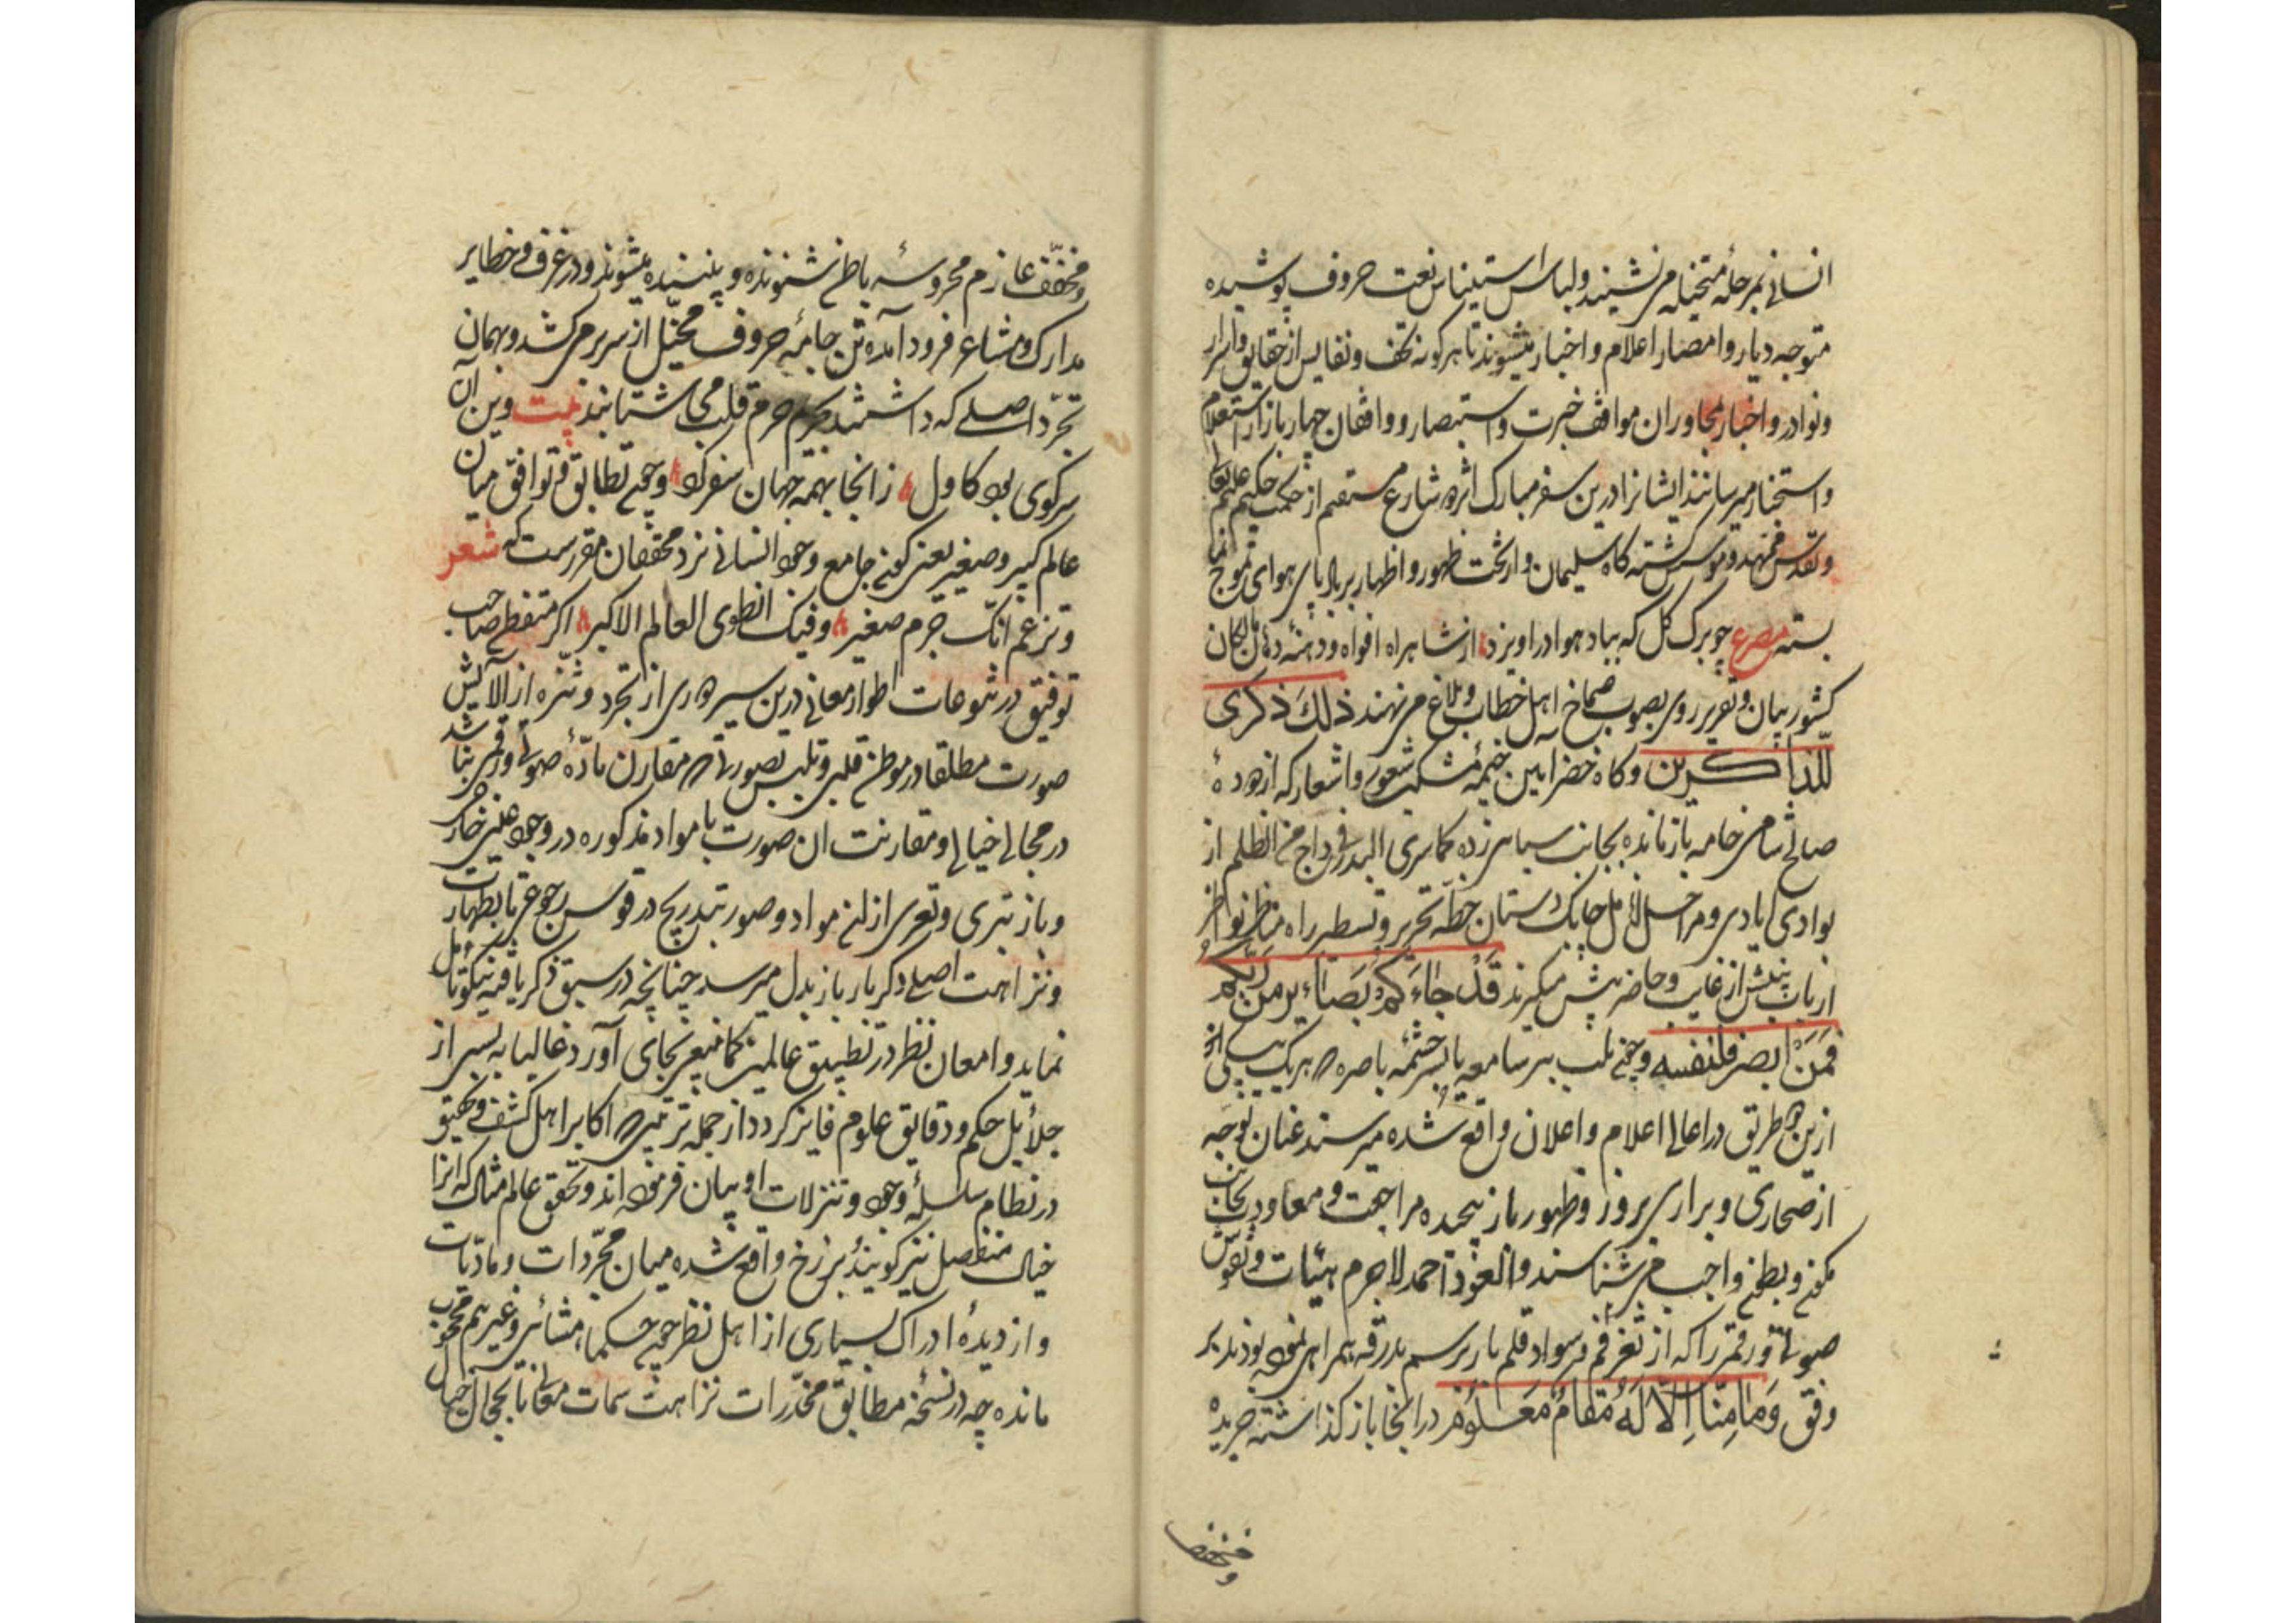 انسانی بمرحلهٔ متخیله می‌نشینند ولباس استیناس نعت حروف پوشیده
متوجه دیار وامصار اعلام واخبار میشوند تا هرکونه تحف ونفایس از حقایق واسرار
ونوادر واخبار مجاوران مواقف خبرت واستبصار وواقفان چهار بازار استعلام
واستخبار میرسانند ایشانرا درین سفر مبارک اثر دو شارع مستقیم از حکمت حکیم علیم تعالی
وتقدس ممهد وموسس کشته کاه سلیمان وار تخت ظهور واظهار بر بالای هوای تموج
بسته مصرع چو برک کل که بباد هوا دراویزد از شاهراه افواه ودهنهٔ دهان
کشور بیان وتقریر روی بصوب صماخ اهل خطاب وبلاغ می نهند ذلک ذکری
للذاکرین وکاه خضرآیین خیمهٔ مشکین شعور واشعار که از دودهٔ
صالح شامی خامه باز مانده بجانب سیاهی زده کما سری البدر فی داج من الظلم از
بوادی ایادی ومراحل انامل چابک دستان خطهٔ تحریر وتسطیر راه مناظر نواظر
ارباب بینش از غایب وحاضر پیش میکیرند قد جاءکم بصائر من ربکم
فمن ابصر فلنفسه وچون بلب بیر سامعه یا بسر چشمهٔ باصره که هر یک
ازین دو طریق در اعالی اعلام واعلان واقع شده میرسند عنان توجه
از صحاری وبراری بروز وظهور باز پیچیده مراجعت ومعاودت بجانب
مکون وبطون واجب می شناسند والعود احمد لاجرم هیئات ونقوش
صوتی ورقمی را که از ثغر فم وسواد قلم باز برسم بدرقه همراهی نموده بودند بر
وفق وما منا الا له مقام معلوم در انجا باز کذاشته جریده
ومخفف
ومخفف عازم محروسهٔ باطن شنونده وبیننده میشوند ودر غرف وخطایر
مدارک ومشاعر فرود آمده تن جامهٔ حروف مخیل از سر بر می‌کشد وبهمان
تجرد اصلی که داشتند بحریم حرم قلب می شتابند بیت وین آن
سر کوی بود کاول زانجا بهمه جهان سفر کرد وچون تطابق وتوافق میان
عالم کبیر وصغیر یعنی کون جامع وجود انسانی نزد محققان مقررست که شعر
وتزعم انک جرم صغیر وفیک انطوی العالم الاکبر اکر متفطن صاحب
توفیق در تنوعات اطوار معانی درین سیر دوری از تجرد وتنزه از الایش
صورت مطلقا در موطن قلبی وتلبس بصورتی که مقارن مادهٔ صوتی ورقمی نباشد
در مجالی خیالی ومقارنت ان صورت با مواد مذکوره در وجود عینی خارجی
وباز تبری وتعری از این مواد وصور بتدریج در قوس رجوعی تا بطهارت
ونزاهت اصلی دکر بار باز بدل میرسد چنانچه در سبق ذکر یافته نیکو تامل
نماید وامعان نظر در تطبیق عالمین کما ینبغی بجای آورد غالبا به بسی از
جلائل حکم ودقایق علوم فایز کردد از جمله ترتیبی که اکابر اهل کشف وتحقیق
در نظام سلسلهٔ وجود وتنزلات او بیان فرموده اند وتحقق عالم مثال که انرا
خیال منفصل نیز کویند برزخ واقع شده میان مجردات ومادیات
واز دیدهٔ ادراک بسیاری از اهل نظر چون حکماء مشائی وغیرهم محجوب
مانده چه در نسخهٔ مطابق مخدرات نزاهت سمات معانی تا بمجال خیال